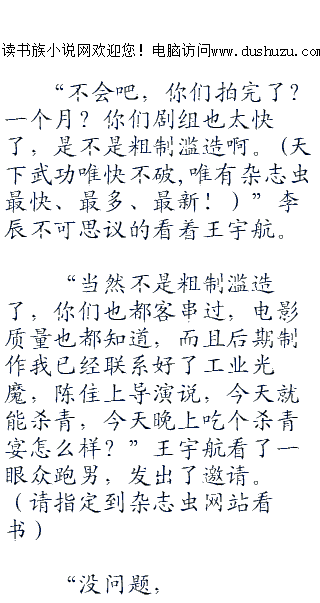 读书族小说网欢迎您！电脑访问www.dushuzu.com
“不会吧，你们拍完了？
一个月？你们剧组也太快
了，是不是粗制滥造啊。(天
下武功唯快不破,唯有杂志虫
最快、最多、最新！)”李
辰不可思议的看着王宇航。
“当然不是粗制滥造
了，你们也都客串过，电影
质量也都知道，而且后期制
作我已经联系好了工业光
魔，陈住上导演说，今天就
能杀青，今天晚上吃个杀青
宴怎么样？”王宇航看了一
眼众跑男，发出了邀请。
（请指定到杂志虫网站看
书）
“没问题，